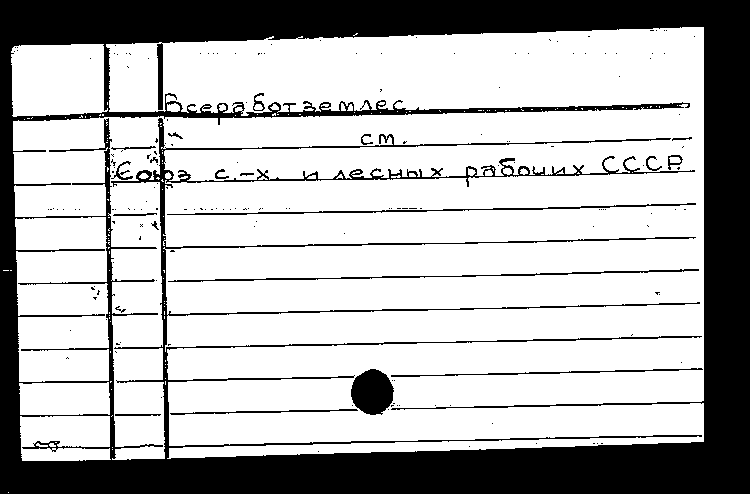 Всеработземлес.
см.
Союз с.-х. и лесных рабочих СССР